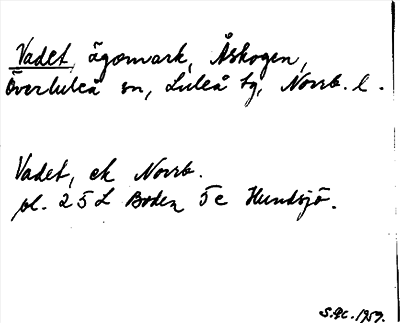 Vadet, ägomark, Åskogen,
Överluleå sn, Luleå tg, Norrb. l.
Vadet, ek Norrb.
pl. 25 L Boden 5c Hundsjö.
S.H. 1959.